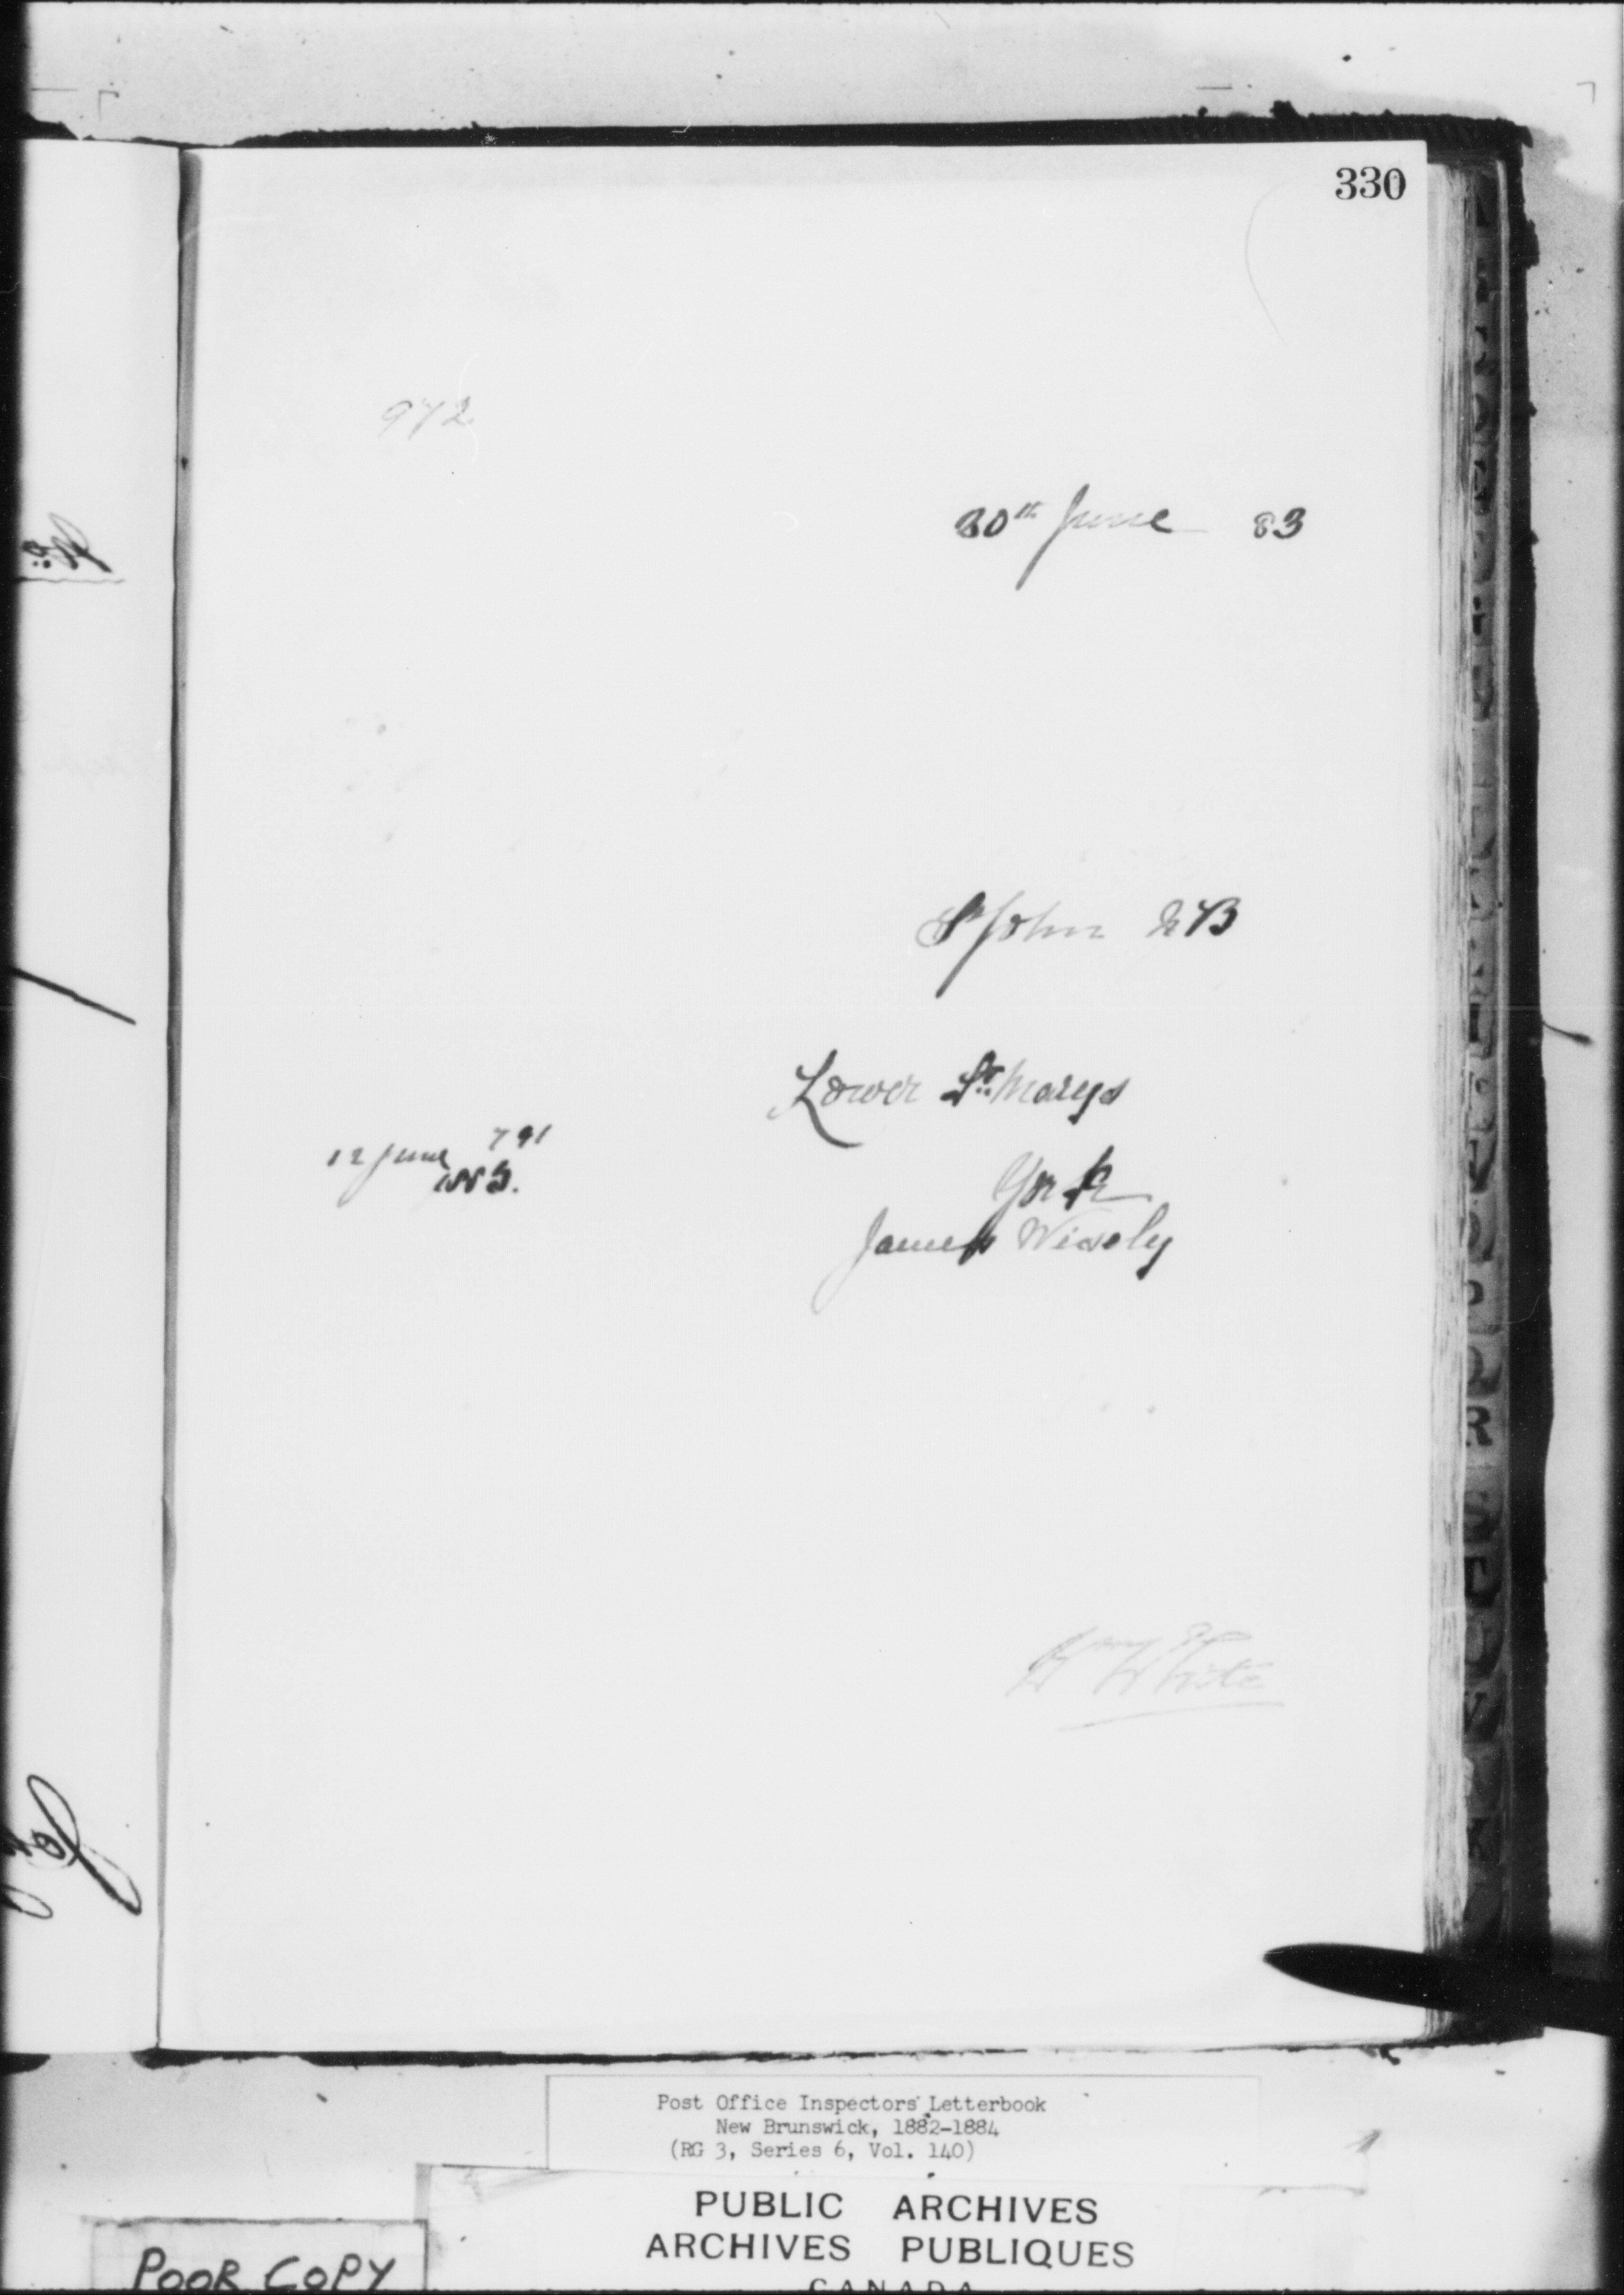 330
972
30th June 83
St John NB
Lower St. Marys
12 June 791
1883.
York
James Wisely
W White
Post Office Inspectors' Letterbook
New Brunswick, 1882-1884
(RG 3, Series 6, Vol. 140)
PUBLIC ARCHIVES
ARCHIVES PUBLIQUES
CANADA
POOR COPY